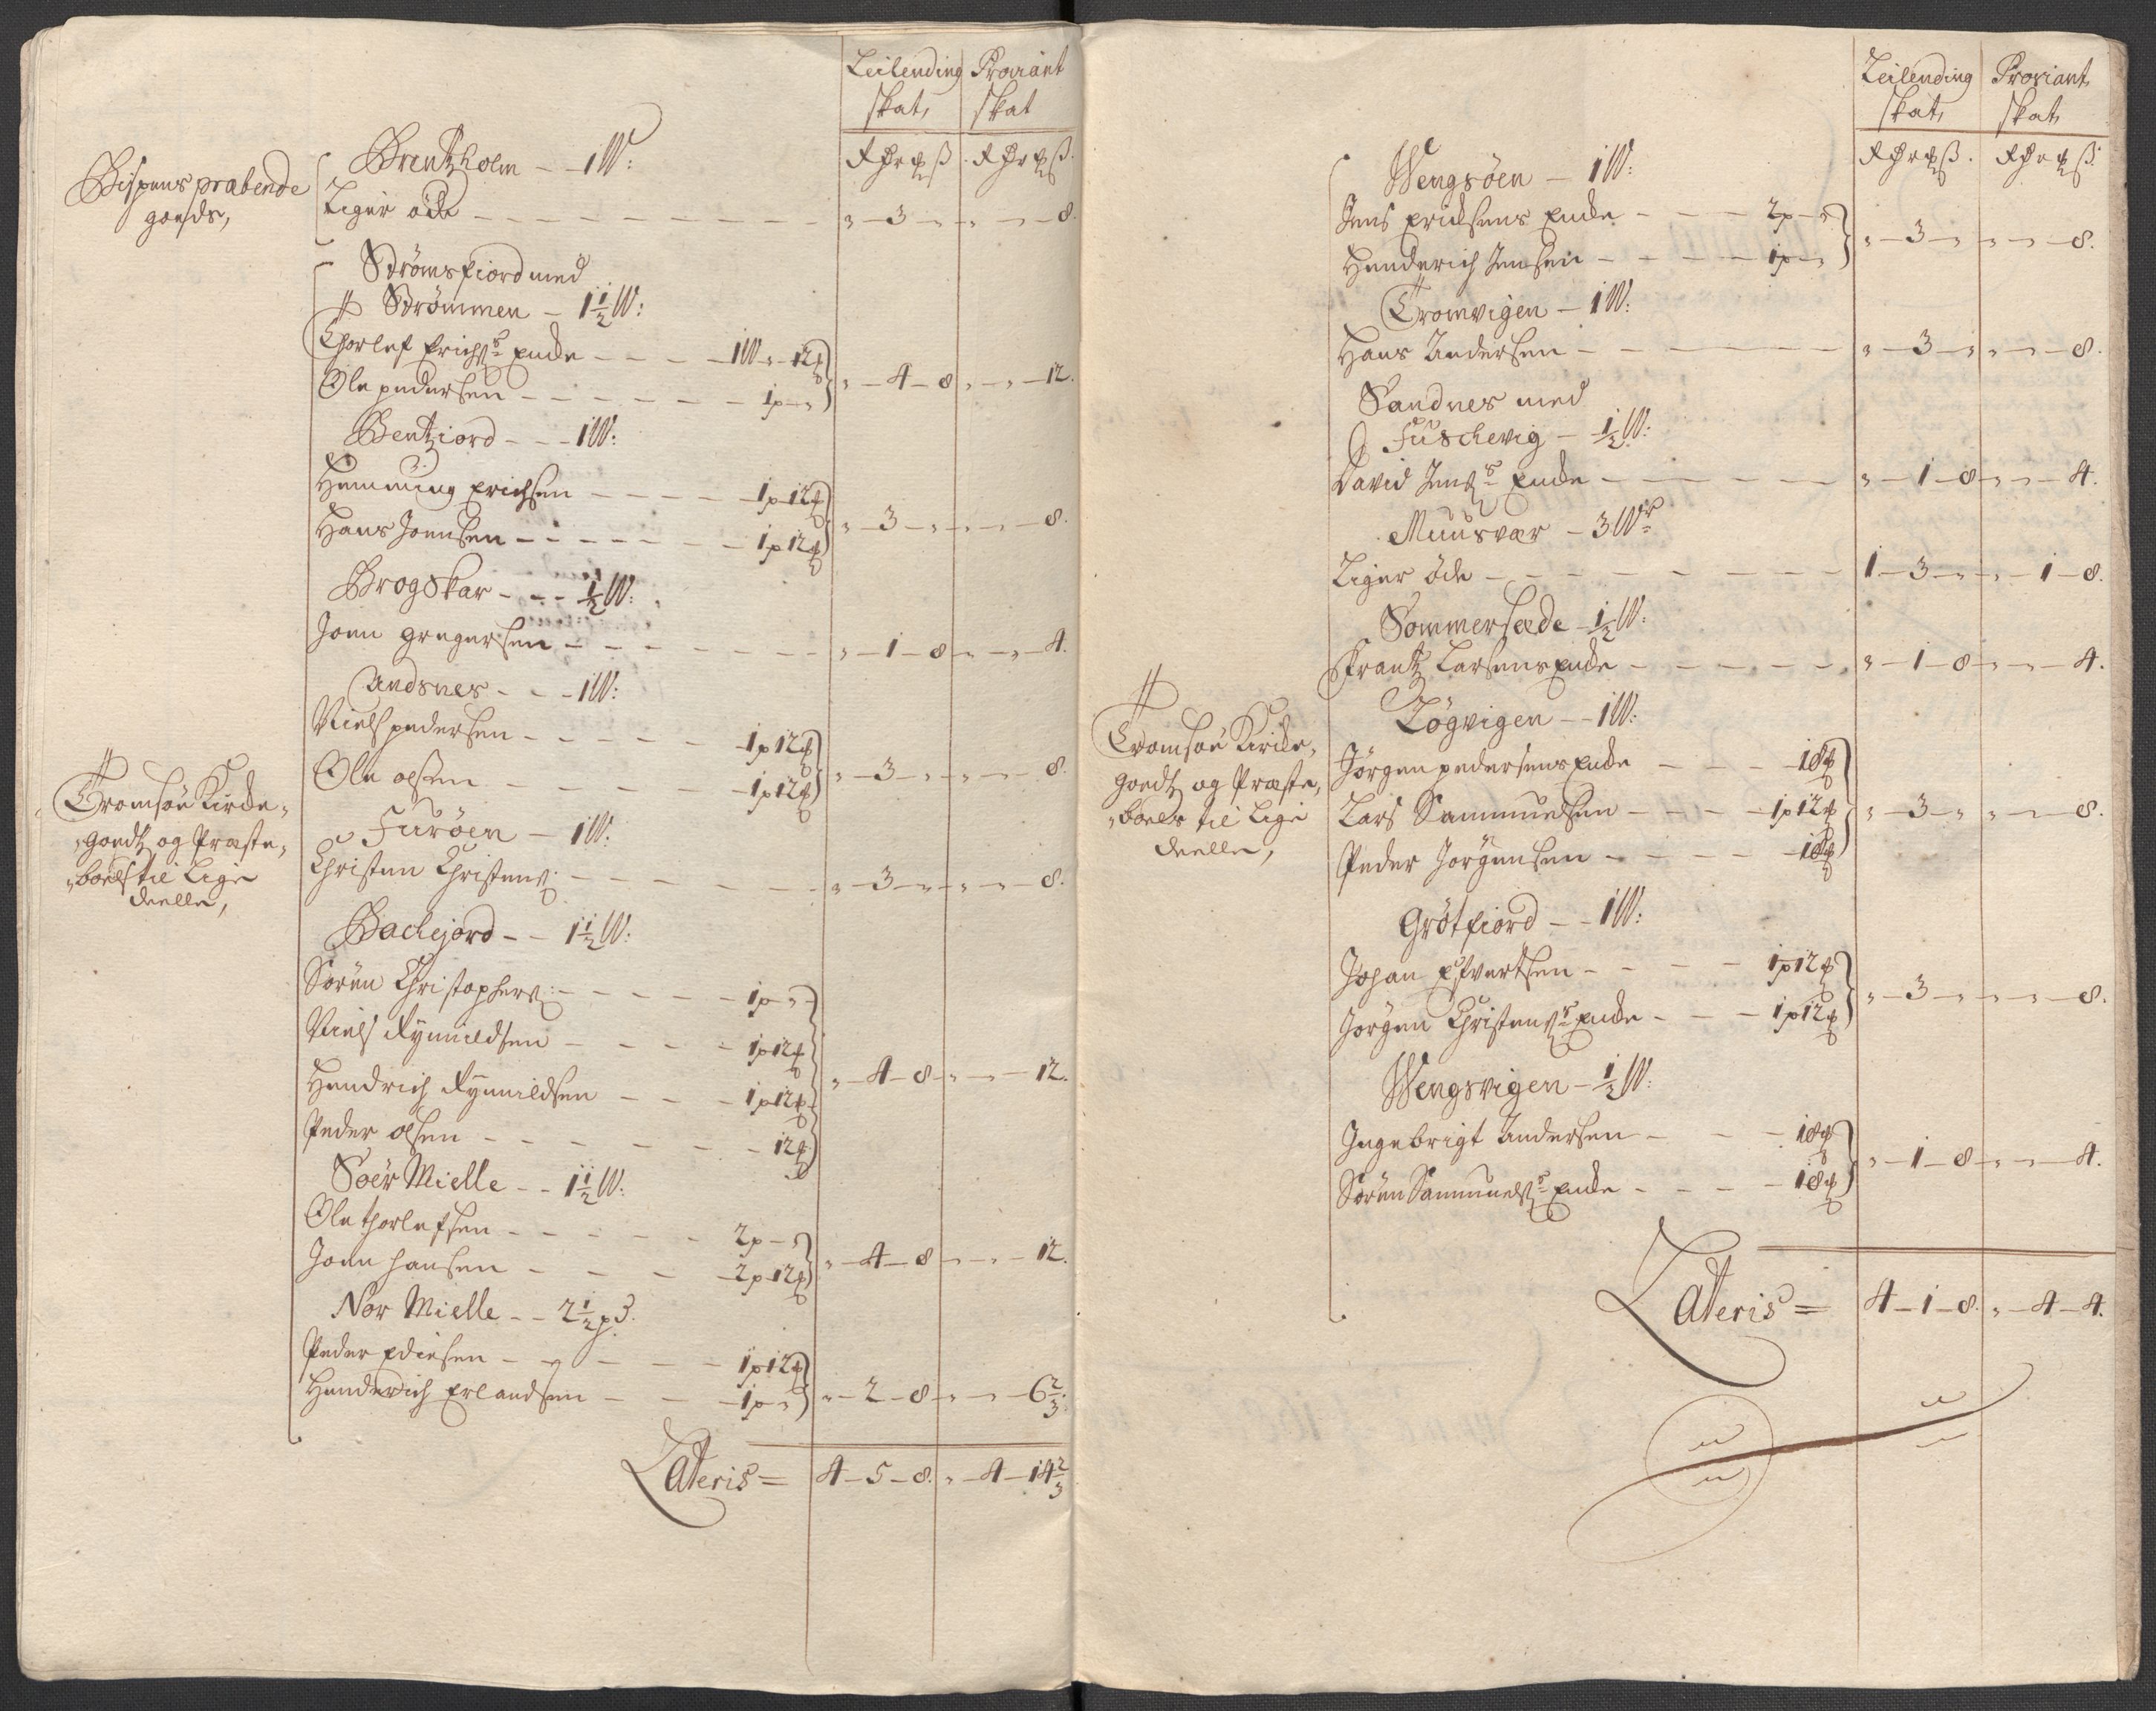 Leilending Proviant
skat, skat
Rdr ₰ ß. Rdr ₰ ß.
Bispens præbende
goeds,
Brentzholm - - 1W:
Liger øde - - - „ - 3 - „ „ - „ - 8.
Strømsfiord med
Strømmen - 1½W:
Thorlef Erichs: Enche - - - 1W - „ - 12₰
Ole pedersen - - - 1p - „ „ - 4 - 8 „ - „ - 12.
Bentziord - - - 1W:
Hemming Erichsen - - - 1p 12₰
Hans Joensen - - - 1p 12₰ „ - 3 - „ „ - „ - 8.
Brogskar - - - ½W:
Joen gregersen - - - „ - 1 - 8 „ - „ - 4.
Andsnes - - - 1W:
Niels pedersen - - - 1p 12₰
Ole olsen - - - 1p 12₰ „ - 3 - „ „ - „ - 8.
Tromsøe Kirche,
goedtz og Præste,
boels til Lige
deelle,
Furøen - 1W:
Christen Christens: - - - „ - 3 - „ „ - „ - 8.
Bachejord - - 1½W:
Søren Christophers: - - - 1p - „
Niels Rymildsen - - - 1p 12₰
Hendrich Rymildsen - - - 1p 12₰ „ - 4 - 8 „ - „ - 12.
Peder olsen - - - 12₰
Soer Mielle - - 1½W:
Ole thorlefsen - - - 2p - „
Joen hansen - - - 2p 12₰ „ - 4 - 8 „ - „ - 12.
Nor Mielle - - 2½p3.
Peder Edisen - - - 1p 12₰
Henderich Erlandsen - - - 1p - „ „ - 2 - 8 „ - „ - 6⅔.
Lateris = 4 - 5 - 8. „ - 4 - 14⅔
Leilending Proviant
skat, skat,
Rdr ₰ ß. Rdr ₰ ß.
Wengsøen - 1W:
Jens Erichsens Enche - - - 2p - „
Henderich Jensen - - - 1p - „ „ - 3 - „ „ - „ - 8.
Tromvigen - 1W:
Hans Andersen - - - „ - 3 - „ „ - „ - 8.
Sandnes med
Fuschevig - ½W:
David Jens: Enche - - - „ - 1 - 8 „ - „ - 4.
Muusvær - 3Wr
Liger øde - - - 1 - 3 - „ „ - 1 - 8.
Sommersæde - ½W:
Frantz Larsens Enche - - - „ - 1 - 8 „ - „ - 4.
Tromsøe Kirche,
goedtz og Præste,
boels til Lige
deelle,
Løgvigen - - 1W:
Jørgen pedersens Enche - - - 18₰
Lars Sammuelsen - - - 1p 12₰ „ - 3 - „ „ - „ - 8.
Peder Jørgensen - - - 18₰
Grøtfiord - - 1W:
Johan Efvertsen - - - 1p 12₰
Jørgen Christens: Enche - - - 1p 12₰ „ - 3 - „ „ - „ - 8.
Wengsvigen - ½W:
Ingebrigt Andersen - - - 18₰
Søren Sammuels: Enche - - - 18₰ „ - 1 - 8 „ - „ - 4.
Lateris = 4 - 1 - 8. „ - 4 - 4.